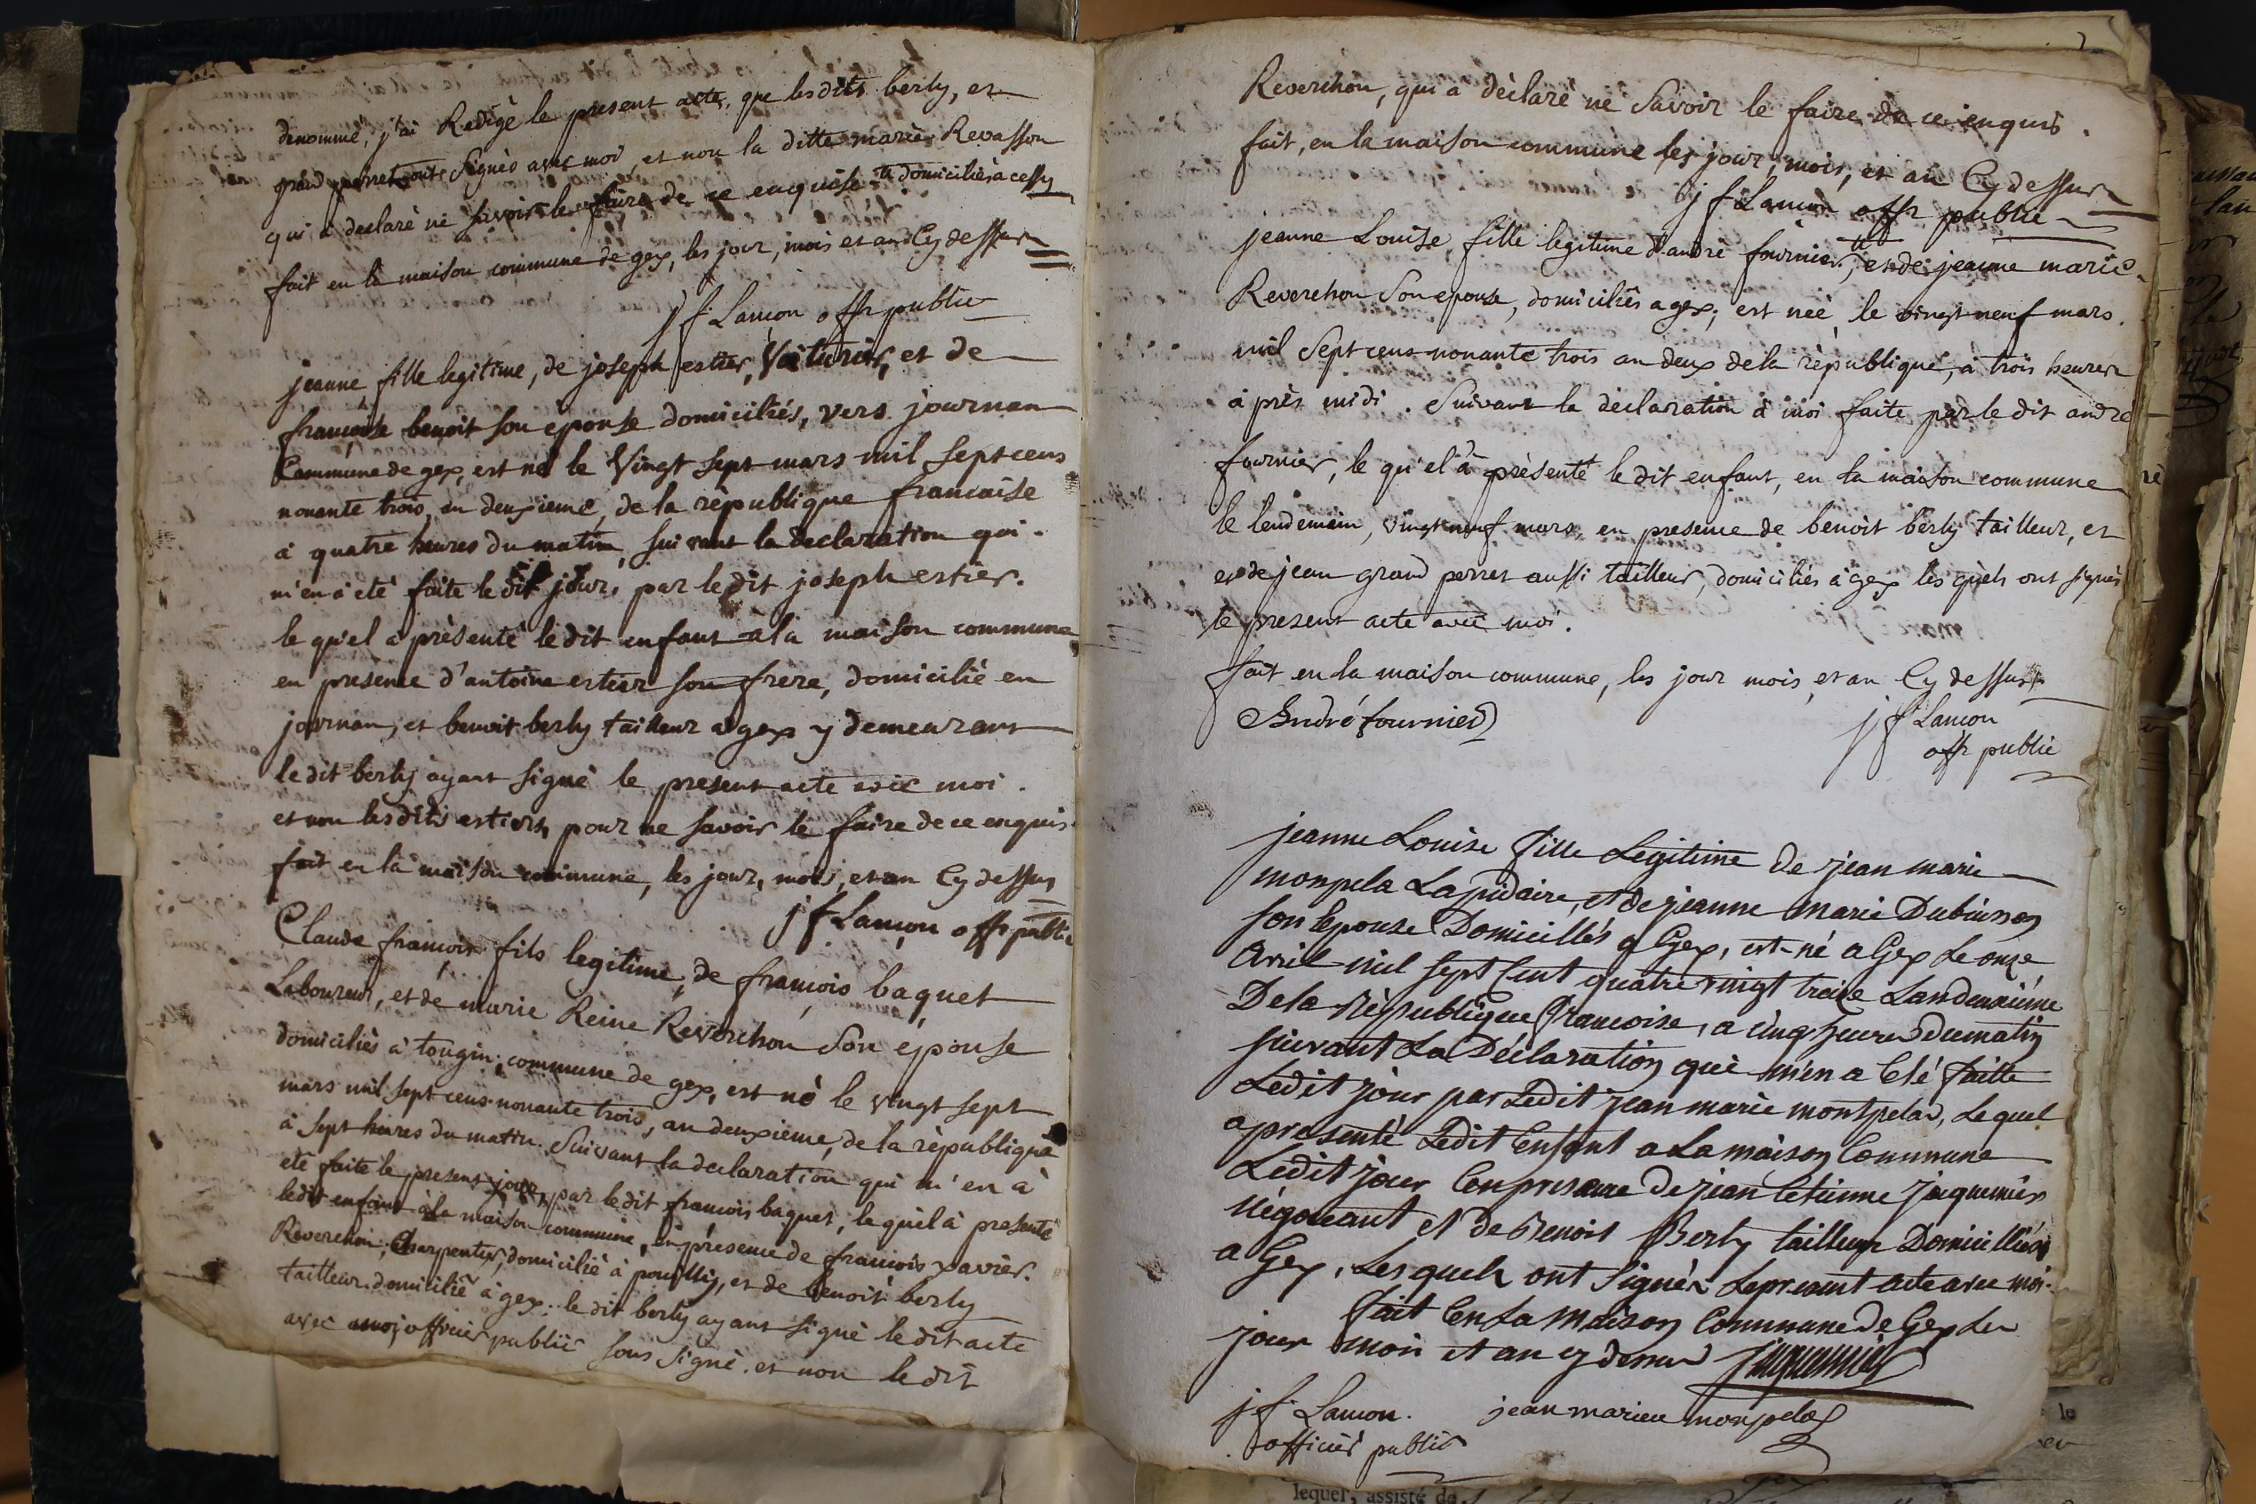 denommé, j'ai Redigé le present acte, que les dits berly, et
grand perret ont signés avec moi, et non la ditte marie Revasson
qui a declaré ne savoir le faire de ce enquise domiciliés à cessy
fait en la maison commune de gex, les jour, mois et an Cy dessus
j f. Lancon offr public
jeanne fille legitime, de joseph estier, Voiturier, et de
francoise benoit son èpouse domiciliés, vers journan
Commune de gex, est né le Vingt sept mars mil sept cens
nonante trois, an deuxieme, de la rèpublique francaise
à quatre heures du matin, suivant la declaration qui
m'en à eté faite le dit jour, par le dit joseph estier.
le qu'el a prèsenté le dit enfant à la maison commune,
en presence d'antoine estier son frere, domicilié en
journan, et benoit berly tailleur a gex y demeurant
le dit berly ayant signé le present acte avec moi.
et non les dits estiers, pour ne savoir le faire de ce enquis
fait en la maison commune, les jour, mois, et an Cy dessus
j f Lancon offr public
Claude francois fils legitime, de françois baquet
Laboureur, et de marie Reine Reverchon Son epouse
domiciliés à tougin, commune de gex, est né le vingt sept
mars mil sept cens nonante trois, an deuxieme, de la rèpublique
à sept heures du matin. Suivant la declaration qui m'en à
eté faite le present jour, par le dit francois baquet, le qu'el à presenté
le dit enfant à la maison commune, en prèsence de francois xavier
Reverchon, Charpentier, domicilié à pouilly, et de benoit berly
tailleur domicilié à gex. le dit berly ayant signé le dit acte
avec moi, officier public sous signé. et non le dit
Reverchon, qui a dèclaré ne Savoir le faire de ce enquis.
fait, en la maison commune les jour, mois, et an Cy dessus
j f Lancon offr public
jeanne Louise, fille legitime d'andré fournier, et de jeanne marie
Reverchon Son epouse, domiciliés a gex, est neé, le vingt neuf mars
mil Sept cens nonante trois an deux de la rèpublique, à trois heures
à près midi. Suivant la dèclaration à moi faite par le dit andré
fournier, le qu'el à prèsenté le dit enfant, en la maison commune
le lendemain, vingt neuf mars en presence de benoit berly tailleur, et
et de jean grand perret aussi tailleur, domiciliés à gex les quels ont signés
le present acte avec moi.
fait en la maison commune, les jour mois, et an Cy dessus
André fournier
j f Lancon
offr public
jeanne Louise fille Legitime De jean marie
monpela Lapidaire, et de jeanne marie Dubuisson
son Epouse Domicillés a Gex, est né a Gex Le onze
Avril mil sept Cent quatre vingt treize Lan deuxiéme
De la Rèpublique françoise, a cinq heures du matin
suivant La Déclaration qui m'en a Eté faitte
Ledit jour par Ledit jean marie montpela, Lequel
a presenté Ledit Enfant a La maison Commune
Ledit jour En presence De jean Etienne jaquemier
Négociant et de Benoit Berly tailleur Domicilliés
a Gex, Lesquels ont Signés Le present acte avec moi.
fait En La Maison Commune de Gex Les
jour mois et an cy dessus jaquemier
j f. Lancon. jean marieu monpela
officier public
lequel, assisté de